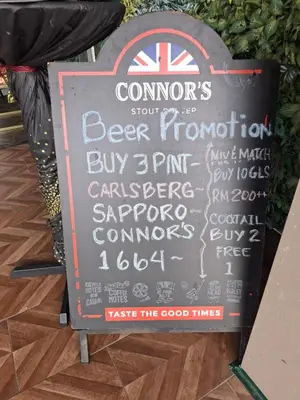 CONNOR'S
STOUT PORTER
Beer Promotion
BUY 3 PINT-
CARLSBERG~
SAPPORO-
CONNOR'S
1664~
MIX & MATCH
BUY 10 GLS
RM 200++
COCTAIL
BUY 2
FREE
1
TASTE THE GOOD TIMES